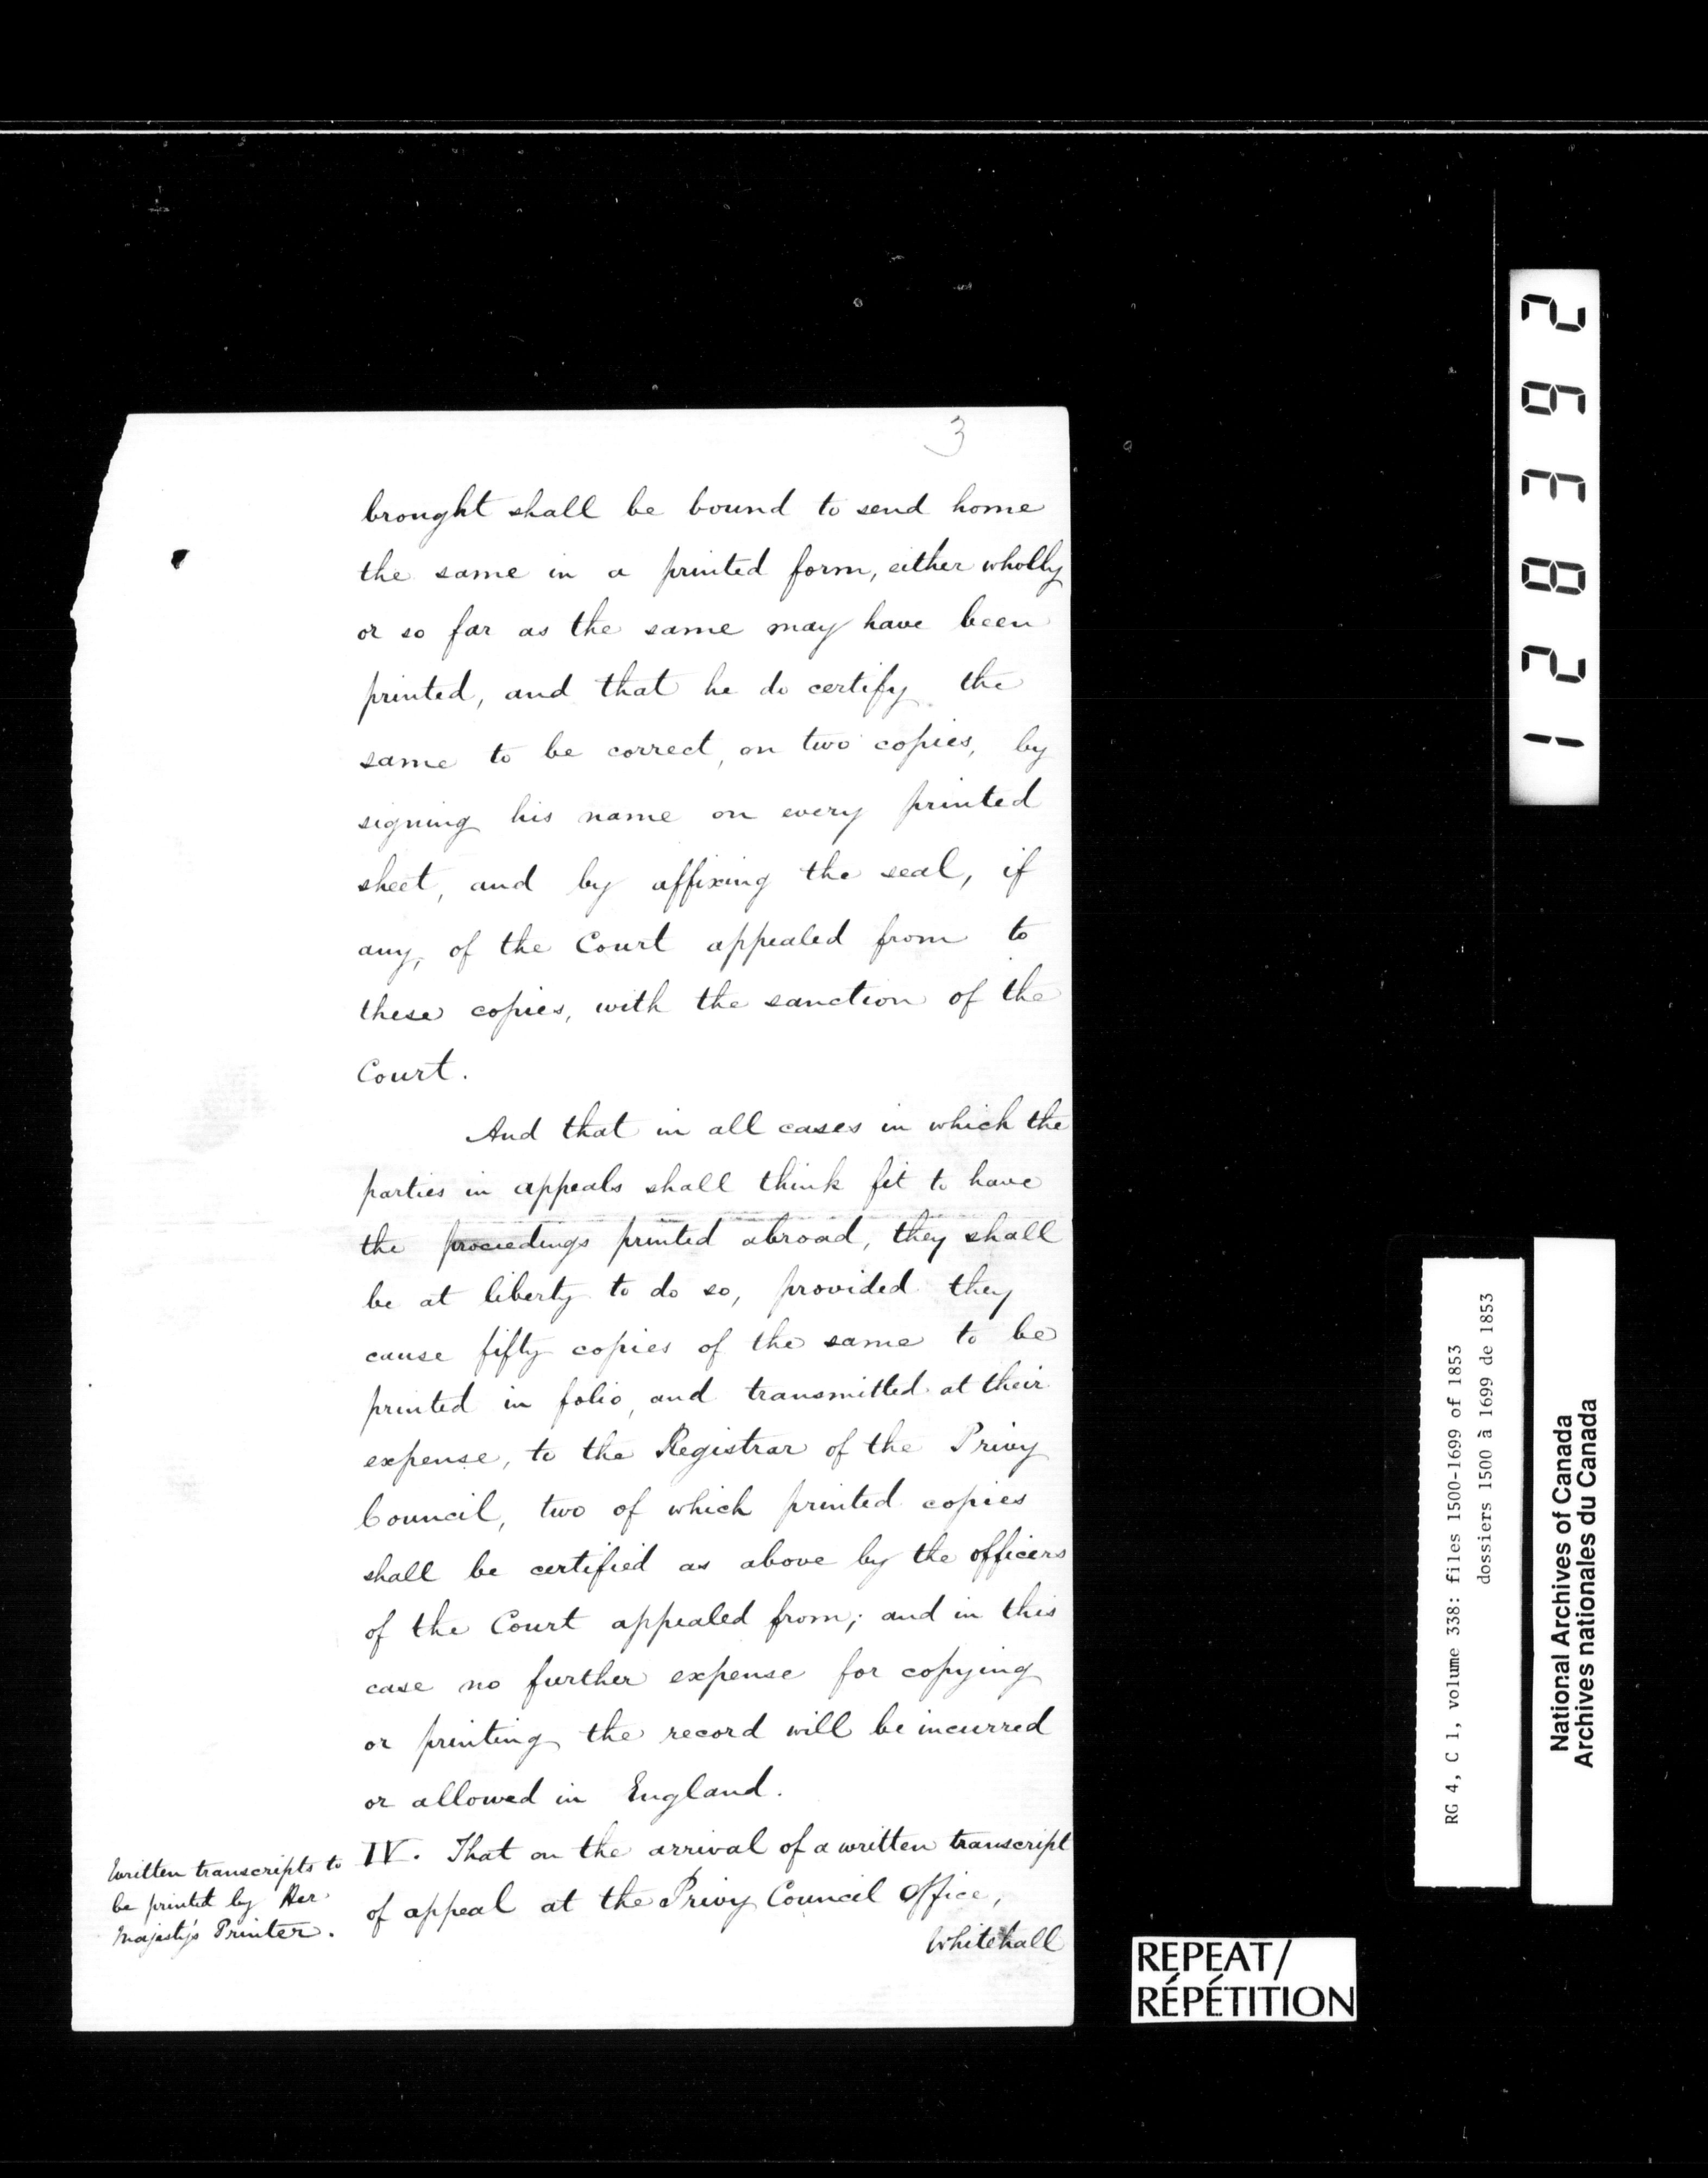 3
brought shall be bound to send home
the same in a printed form, either wholly
or so far as the same may have been
printed, and that he do certify the
same to be correct, on two copies, by
signing his name on every printed
sheet, and by affixing the seal, if
any, of the Court appealed from to
these copies, with the sanction of the
Court.
And that in all cases in which the
parties in appeals shall think fit to have
the proceedings printed abroad, they shall
be at liberty to do so, provided they
cause fifty copies of the same to be
printed in folio, and transmitted at their
expense, to the Registrar of the Privy
Council, two of which printed copies
shall be certified as above by the officers
of the Court appealed from; and in this
case no further expense for copying
or printing the record will be incurred
or allowed in England.
Written transcripts to
be printed by Her
Majesty's Printer.
IV. That on the arrival of a written transcript
of appeal at the Privy Council Office,
Whitehall
128392
RG 4, C 1, volume 338: files 1500-1699 of 1853
dossiers 1500 à 1699 de 1853
National Archives of Canada
Archives nationales du Canada
REPEAT/
RÉPÉTITION